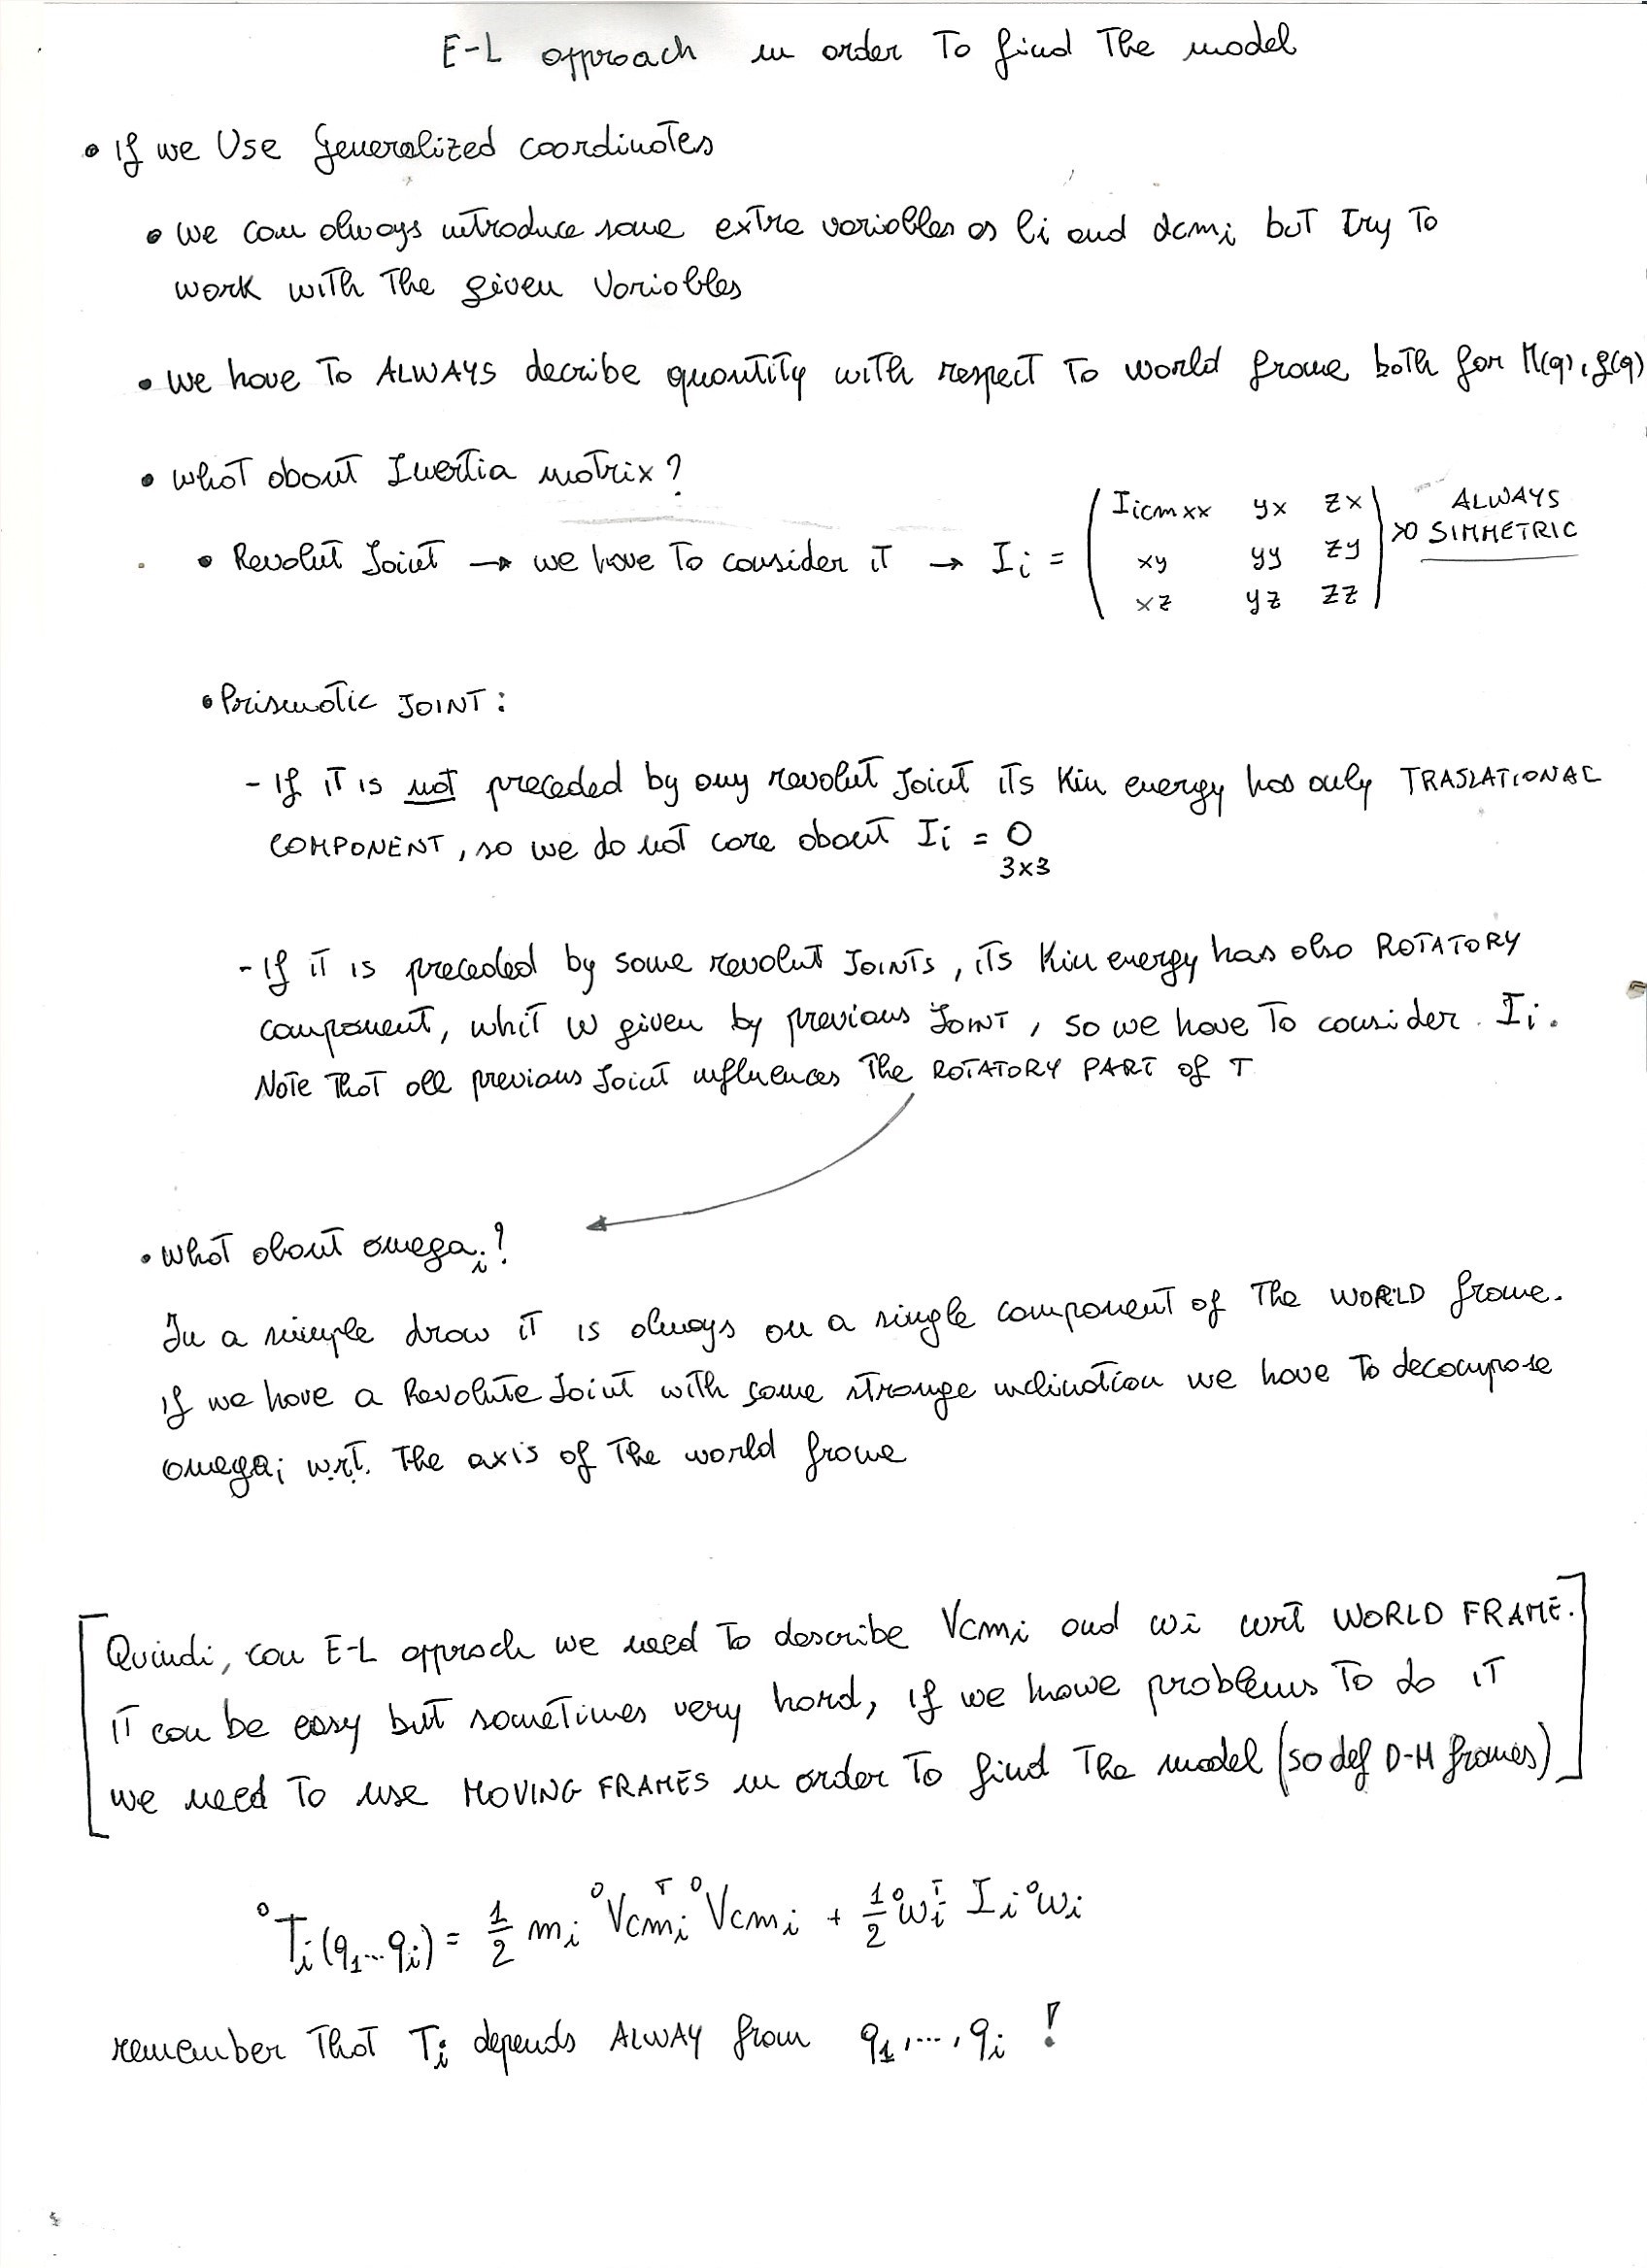 E-L approach in order To find The model
• If we Use Generalized coordinates
• We can always introduce some extra variables as li and dcmi but try To
work with The given Variables
• We have To ALWAYS decribe quantity with respect To world frame both for M(q), g(q)
• What about Inertia matrix?
• Revolut Joint → we have To consider iT → Ii = ( Iicmxx yx zx ) >0 ALWAYS SIMMETRIC
xy yy zy
xz yz zz
• Prismatic JOINT:
- If iT is not preceded by any revolut Joint iTs Kin energy has only TRASLATIONAL
COMPONENT, so we do not care about Ii = 0
3x3
- If iT is preceded by some revolut JOINTS, iTs Kin energy has also ROTATORY
component, whit w given by previous JOINT, so we have To consider Ii.
Note That all previous Joint influences The ROTATORY PART of T
• What about omegai?
In a simple draw iT is always on a single component of The WORLD frame.
if we have a Revolute Joint with some strange inclination we have To decompose
omegai w.r.T. The axis of The world frame
[Quindi, con E-L approch we need To describe Vcmi and wi wrt WORLD FRAME.
iT can be easy but sometimes very hard, if we have problems To do iT
we need To use MOVING FRAMES in order To find The model (so def D-H frames)]
⁰Ti(q1...qi) = 1/2 mi ⁰Vcmiᵀ ⁰Vcmi + 1/2 ⁰wiᵀ Ii ⁰wi
remember That Ti depends ALWAY from q1,...,qi !